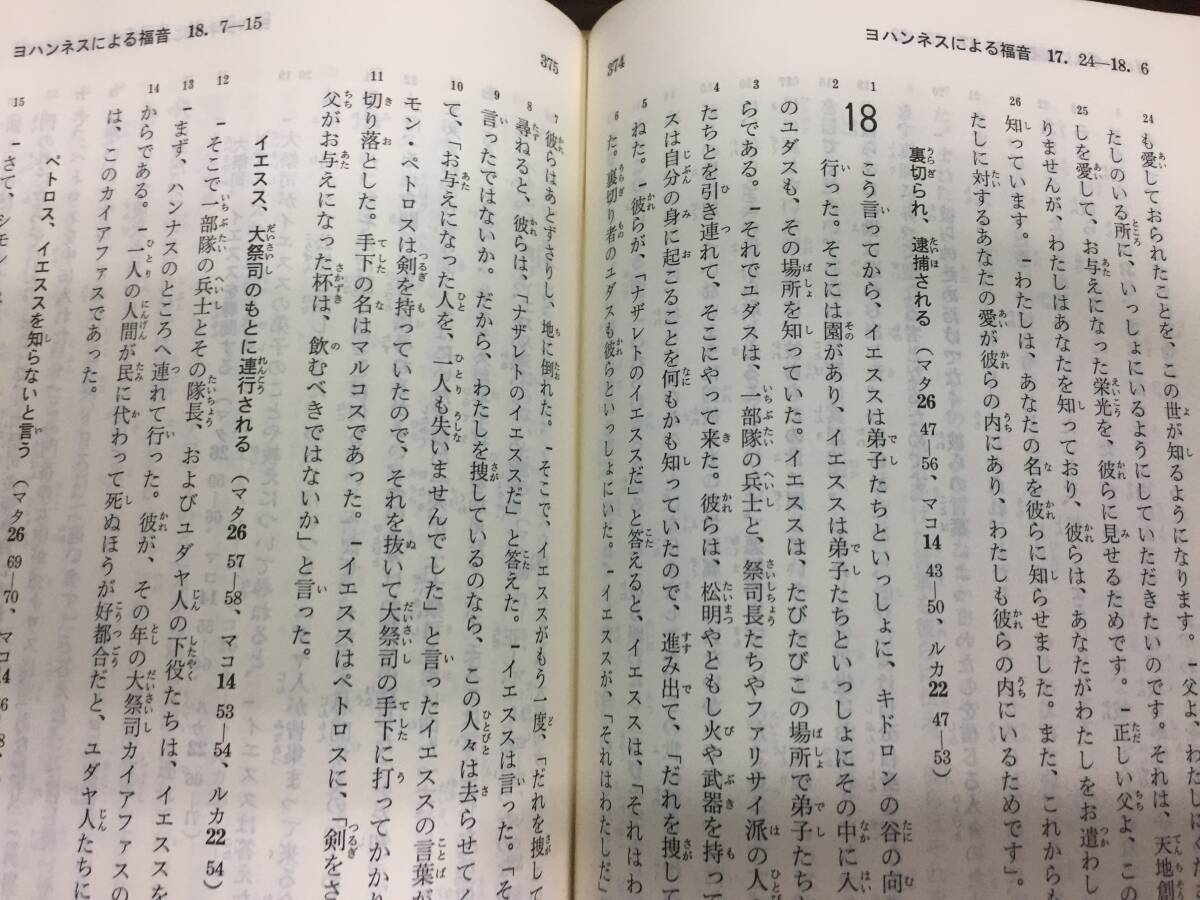 ヨハンネスによる福音 17. 24—18. 6
24 も愛しておられたことを、この世が知るようになります。—父よ、わたしに
たしのいる所に、いっしょにいるようにしていただきたいのです。それは、天地創
25 しを愛して、お与えになった栄光を、彼らに見せるためです。—正しい父よ、この
りませんが、わたしはあなたを知っており、彼らは、あなたがわたしをお遣わし
26 知っています。—わたしは、あなたの名を彼らに知らせました。また、これからも
たしに対するあなたの愛が彼らの内にあり、わたしも彼らの内にいるためです」。
裏切られ、逮捕される (マタ26 47—56、マコ14 43—50、ルカ22 47—53)
18
1 こう言ってから、イエススは弟子たちといっしょに、キドロンの谷の向
2 行った。そこには園があり、イエススは弟子たちといっしょにその中に入
のユダスも、その場所を知っていた。イエススは、たびたびこの場所で弟子たち
3 らである。—それでユダスは、一部隊の兵士と、祭司長たちやファリサイ派の人
4 たちとを引き連れて、そこにやって来た。彼らは、松明やともし火や武器を持っ
スは自分の身に起こることを何もかも知っていたので、進み出て、「だれを捜して
5 ねた。—彼らが、「ナザレトのイエススだ」と答えると、イエススは、「それはわ
6 た。裏切り者のユダスも彼らといっしょにいた。—イエススが、「それはわたしだ」
374
ヨハンネスによる福音 18. 7—15
375
7 彼らはあとずさりし、地に倒れた。—そこで、イエススがもう一度、「だれを捜して
8 尋ねると、彼らは、「ナザレトのイエススだ」と答えた。—イエススは言った。「そ
9 言ったではないか。だから、わたしを捜しているのなら、この人々は去らせてく
10 て、「お与えになった人を、一人も失いませんでした」と言ったイエススの言葉が
モン・ペトロスは剣を持っていたので、それを抜いて大祭司の手下に打ってかかり
11 切り落とした。手下の名はマルコスであった。—イエススはペトロスに、「剣をさ
父がお与えになった杯は、飲むべきではないか」と言った。
イエスス、大祭司のもとに連行される (マタ26 57—58、マコ14 53—54、ルカ22 54)
12 —そこで一部隊の兵士とその隊長、およびユダヤ人の下役たちは、イエススを
13 —まず、ハンナスのところへ連れて行った。彼が、その年の大祭司カイアファスの
14 からである。—一人の人間が民に代わって死ぬほうが好都合だと、ユダヤ人たちに
は、このカイアファスであった。
ペトロス、イエススを知らないと言う (マタ26 69—70、マコ14
15 —さて、シモン